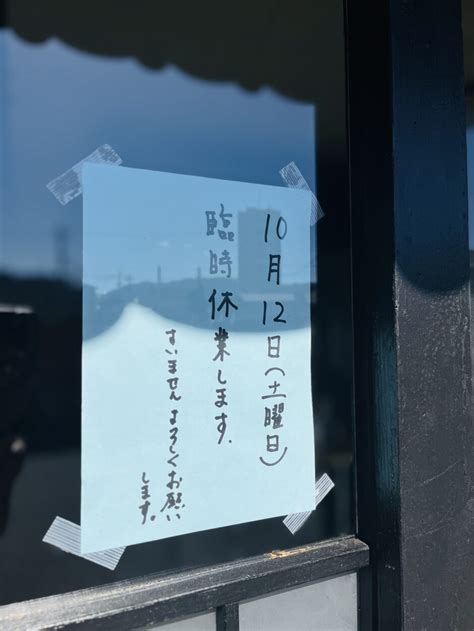 10月12日(土曜日)
臨時休業します.
すいません よろしくお願い
します。